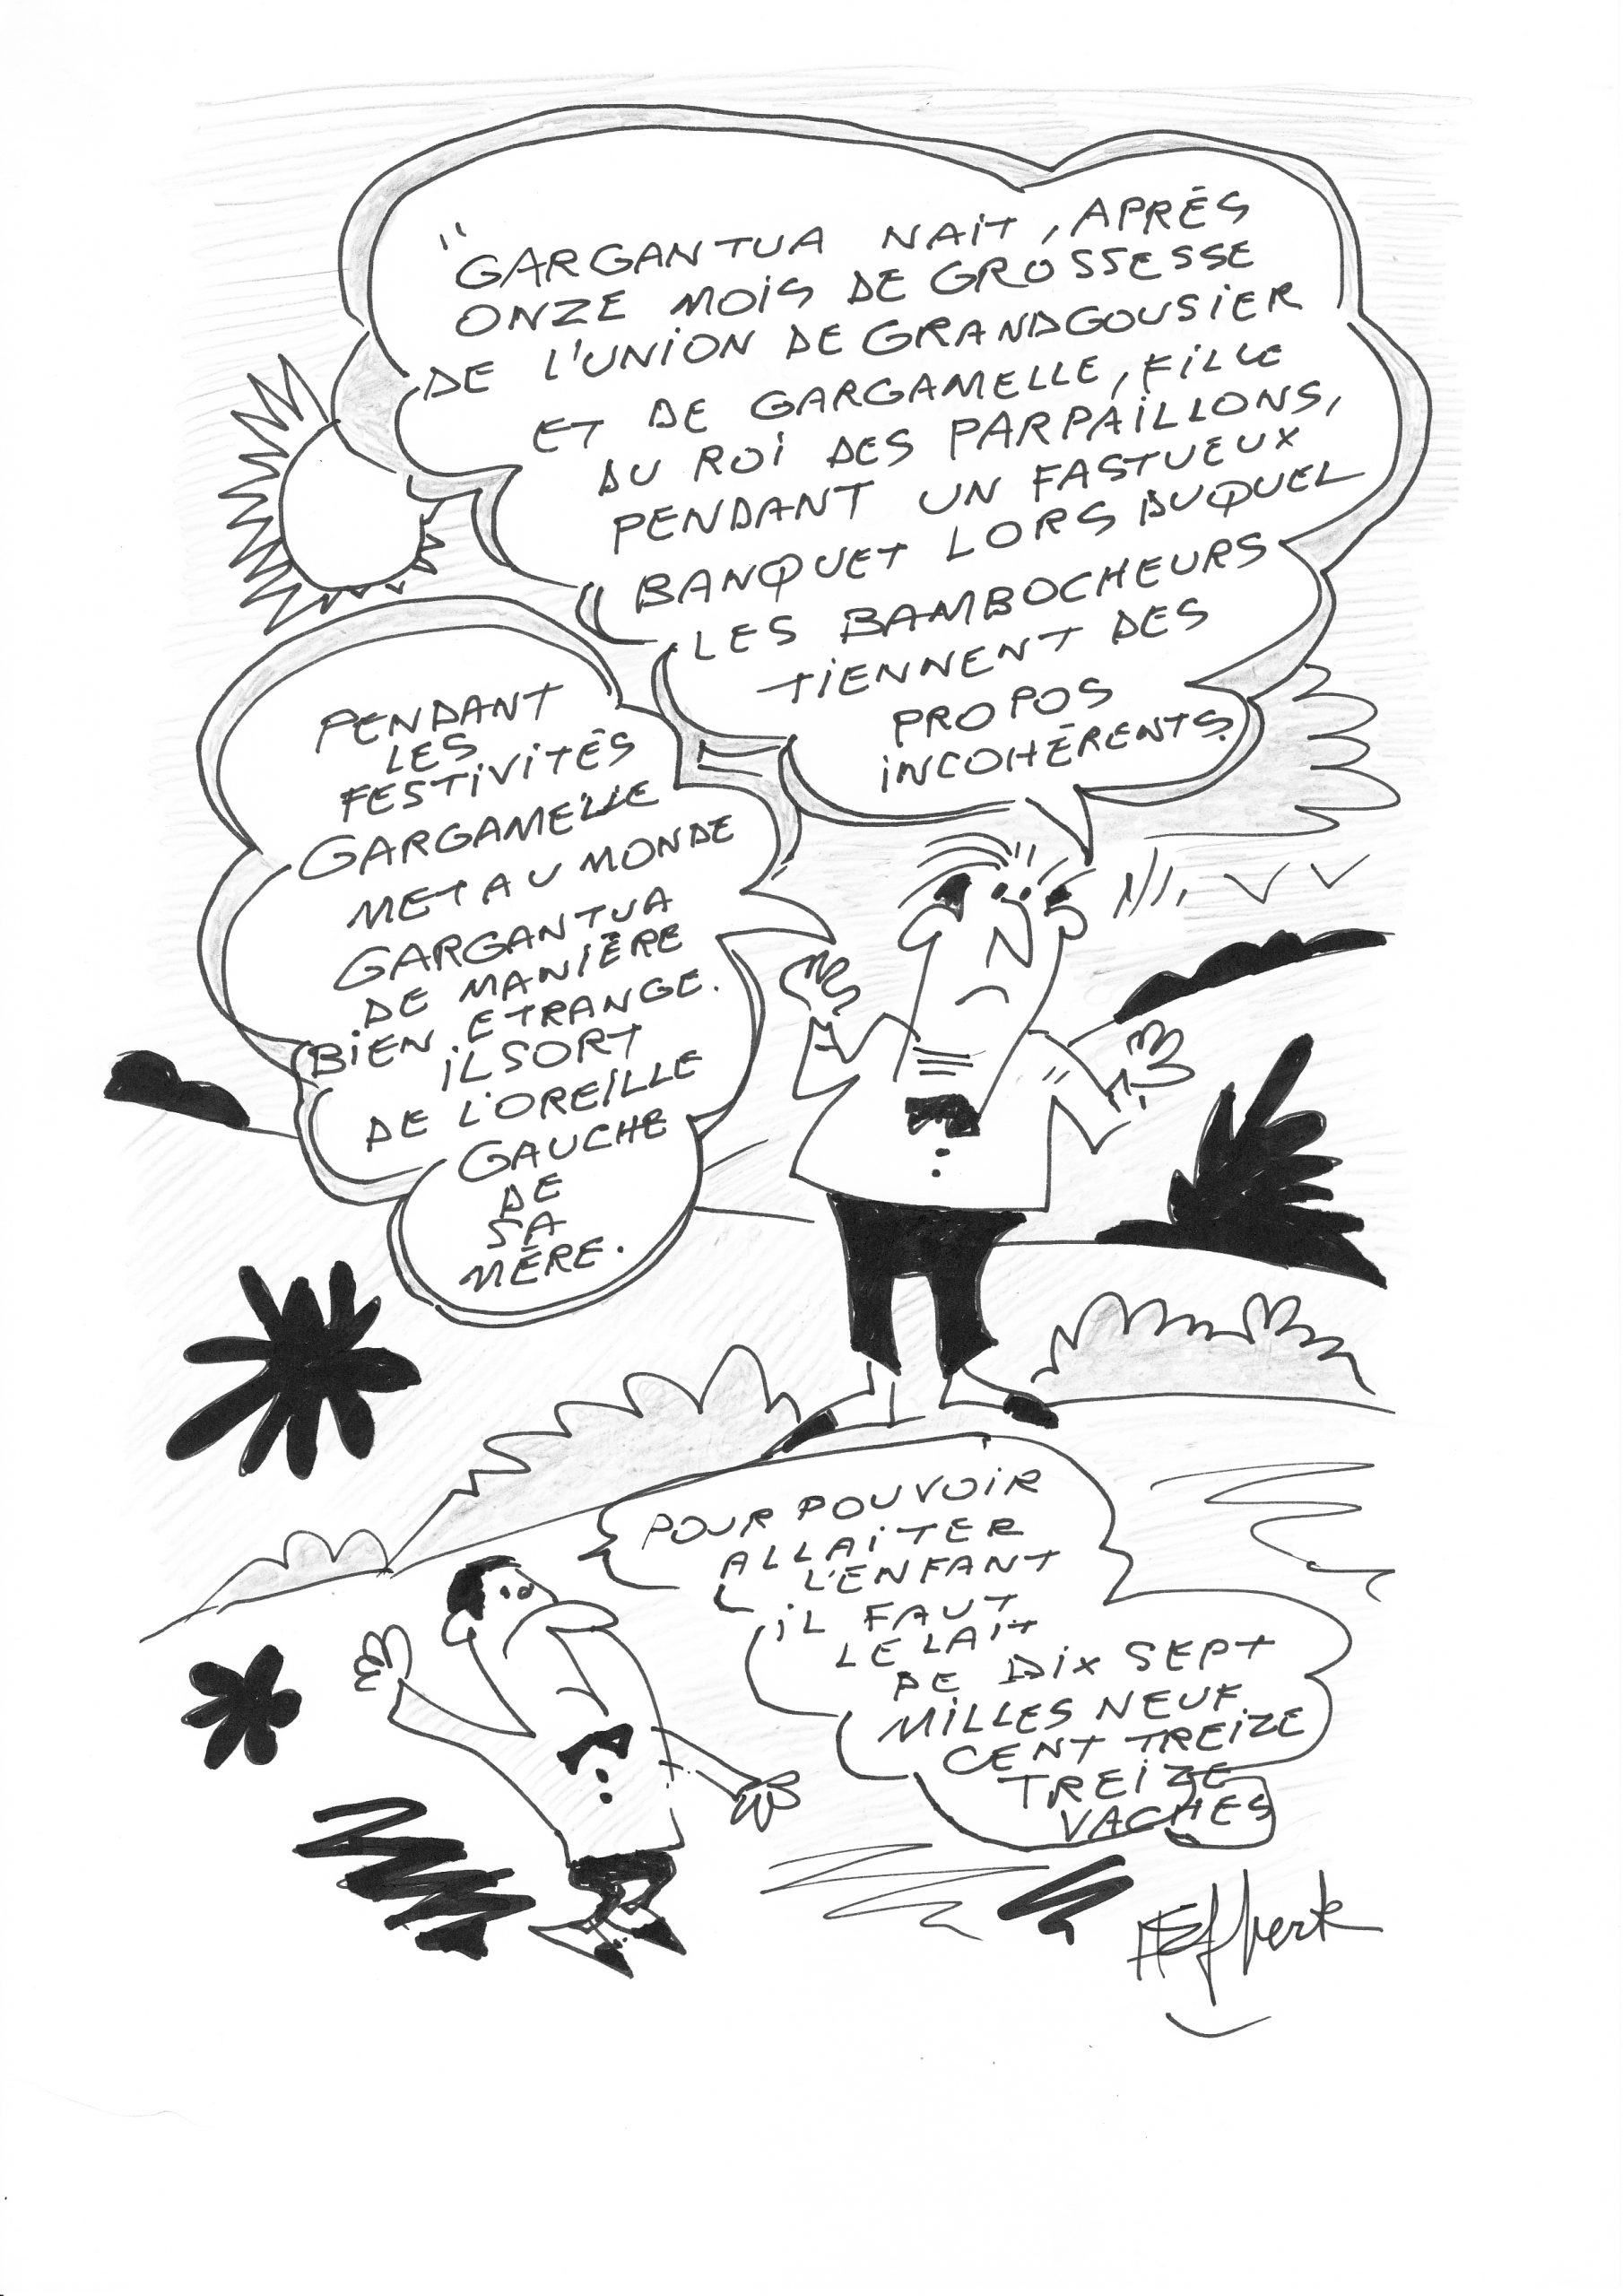 "GARGANTUA NAIT, APRÉS
ONZE MOIS DE GROSSESSE
DE L'UNION DE GRANDGOUSIER
ET DE GARGAMELLE, FILLE
DU ROI DES PARPAILLONS,
PENDANT UN FASTUEUX
BANQUET LORS DUQUEL
LES BAMBOCHEURS
TIENNENT DES
PROPOS
INCOHÉRENTS.
PENDANT
LES
FESTIVITÉS
GARGAMELLE
MET AU MONDE
GARGANTUA
DE MANIÉRE
BIEN ETRANGE.
IL SORT
DE L'OREILLE
GAUCHE
DE
SA
MÉRE.
POUR POUVOIR
ALLAITER
L'ENFANT
IL FAUT
LE LAIT
DE DIX SEPT
MILLES NEUF
CENT TREIZE
TREIZE
VACHES